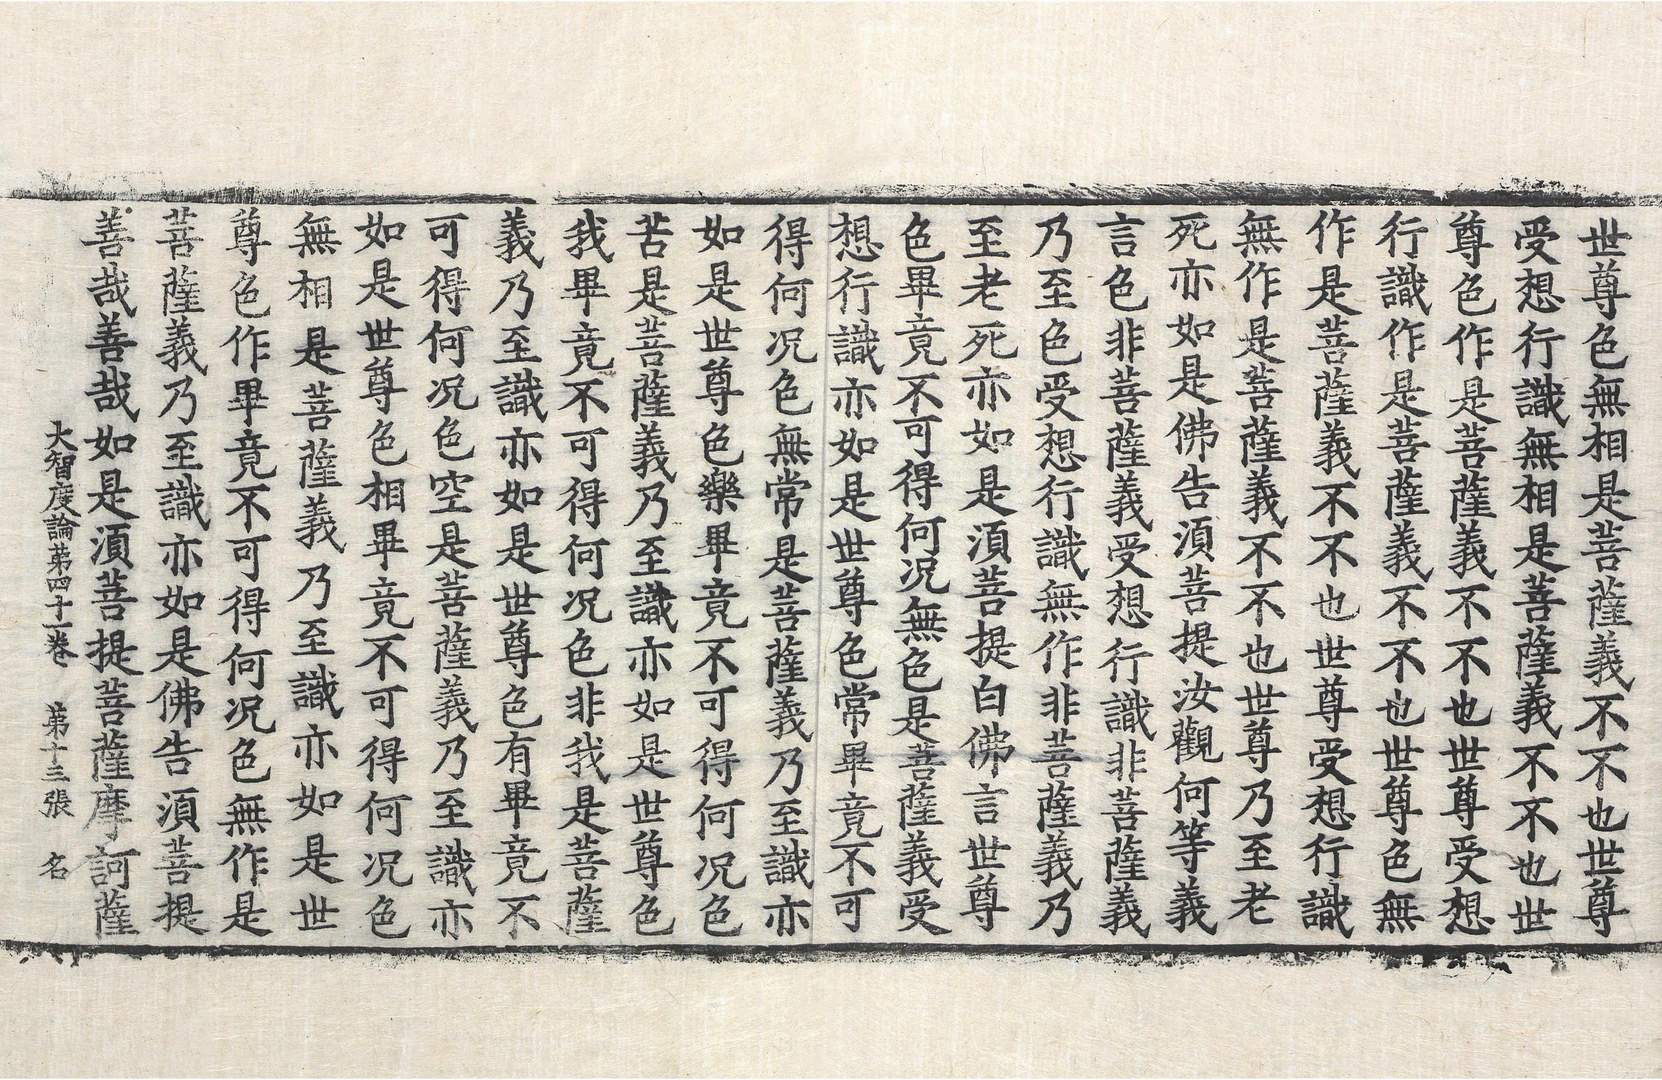 世尊色無相是菩薩義不不也世尊
受想行識無相是菩薩義不不也世
尊色作是菩薩義不不也世尊受想
行識作是菩薩義不不也世尊色無
作是菩薩義不不也世尊受想行識
無作是菩薩義不不也世尊乃至老
死亦如是佛告湏菩提汝觀何等義
言色非菩薩義受想行識非菩薩義
乃至色受想行識無作非菩薩義乃
至老死亦如是湏菩提白佛言世尊
色畢竟不可得何况無色是菩薩義受
想行識亦如是世尊色常畢竟不可
得何况色無常是菩薩義乃至識亦
如是世尊色樂畢竟不可得何况色
苦是菩薩義乃至識亦如是世尊色
我畢竟不可得何况色非我是菩薩
義乃至識亦如是世尊色有畢竟不
可得何况色空是菩薩義乃至識亦
如是世尊色相畢竟不可得何况色
無相是菩薩義乃至識亦如是世
尊色作畢竟不可得何况色無作是
菩薩義乃至識亦如是佛告湏菩提
善哉善哉如是湏菩提菩薩摩訶薩
大智度論苐四十一卷 苐十三張 名